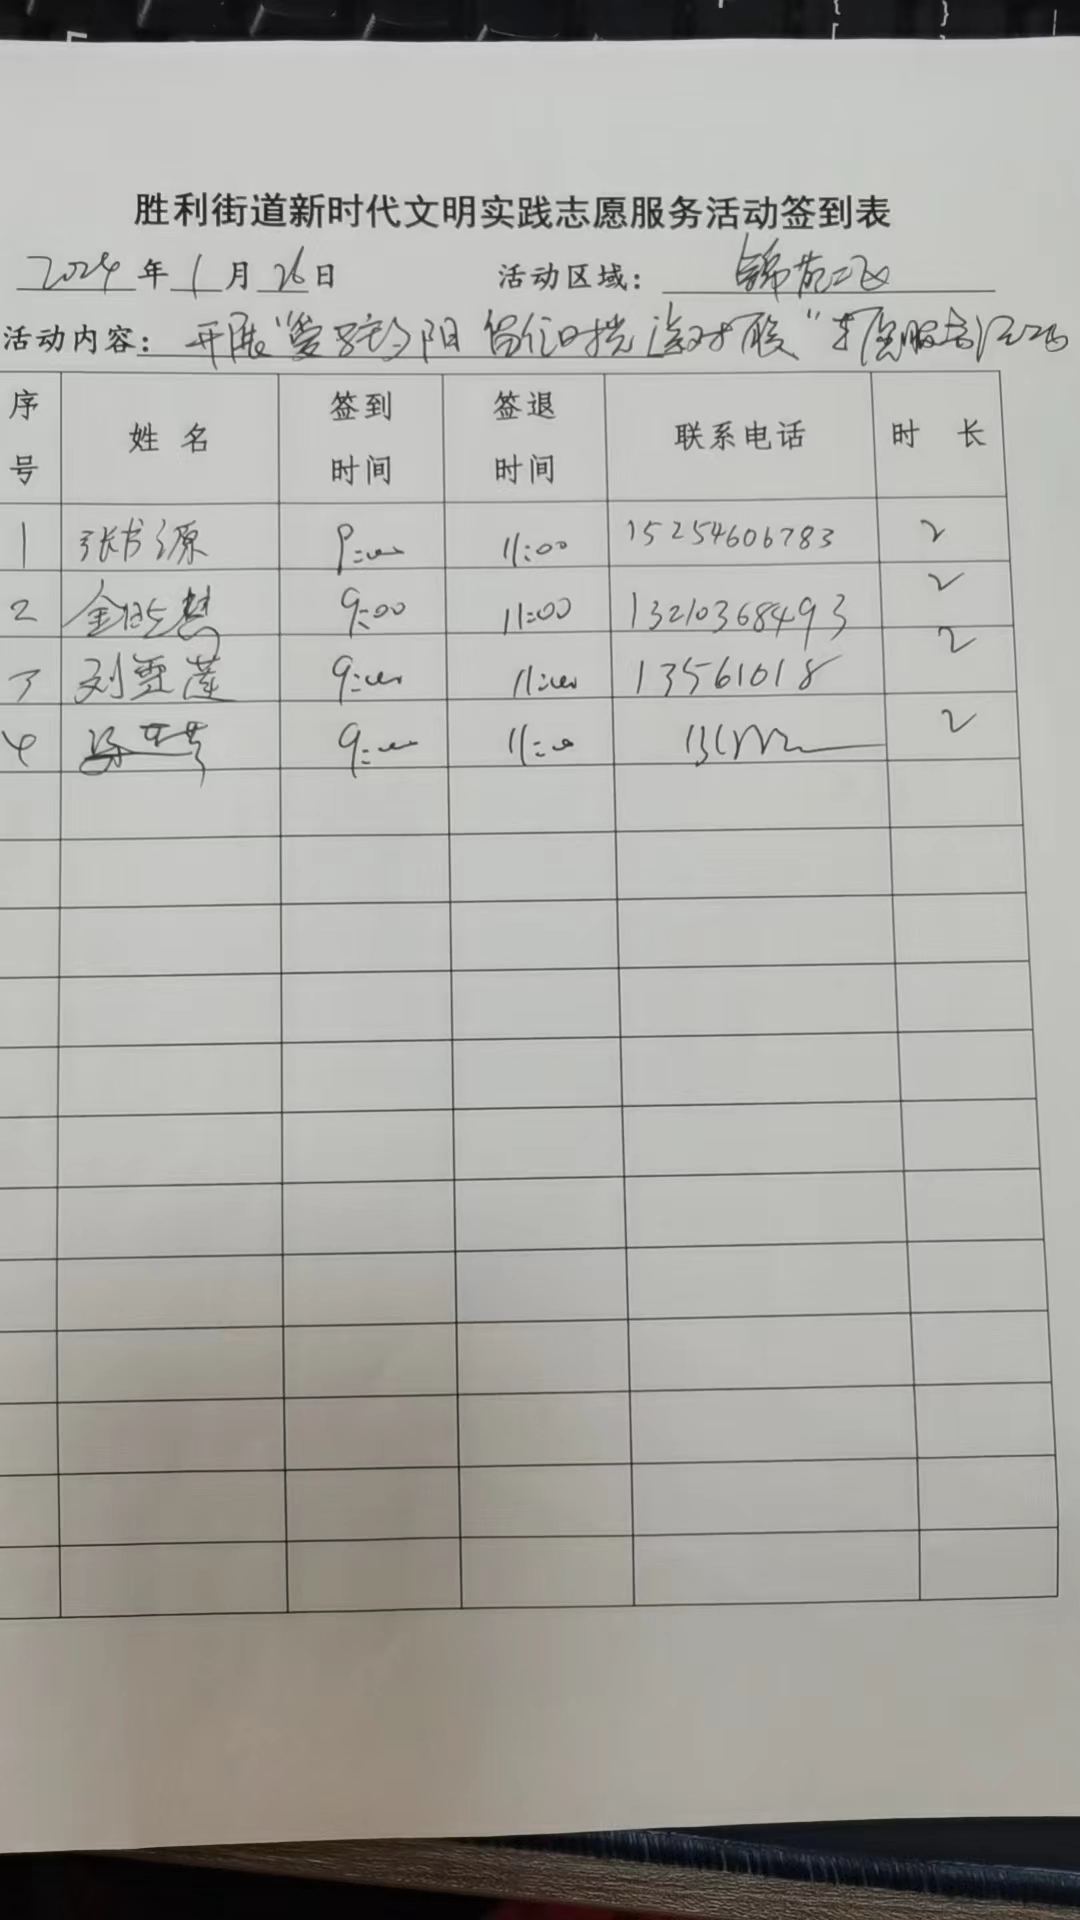 胜利街道新时代文明实践志愿服务活动签到表
2024年1月26日 活动区域：锦苑二区
活动内容：开展“爱 阳 送对联”志愿服务活动
序号 姓名 签到时间 签退时间 联系电话 时长
1 张书源 9:00 11:00 15254606783 2
2 金晓慧 9:00 11:00 13210368493 2
3 刘亚莲 9:00 11:00 13561018 2
4 9:00 11:00 2